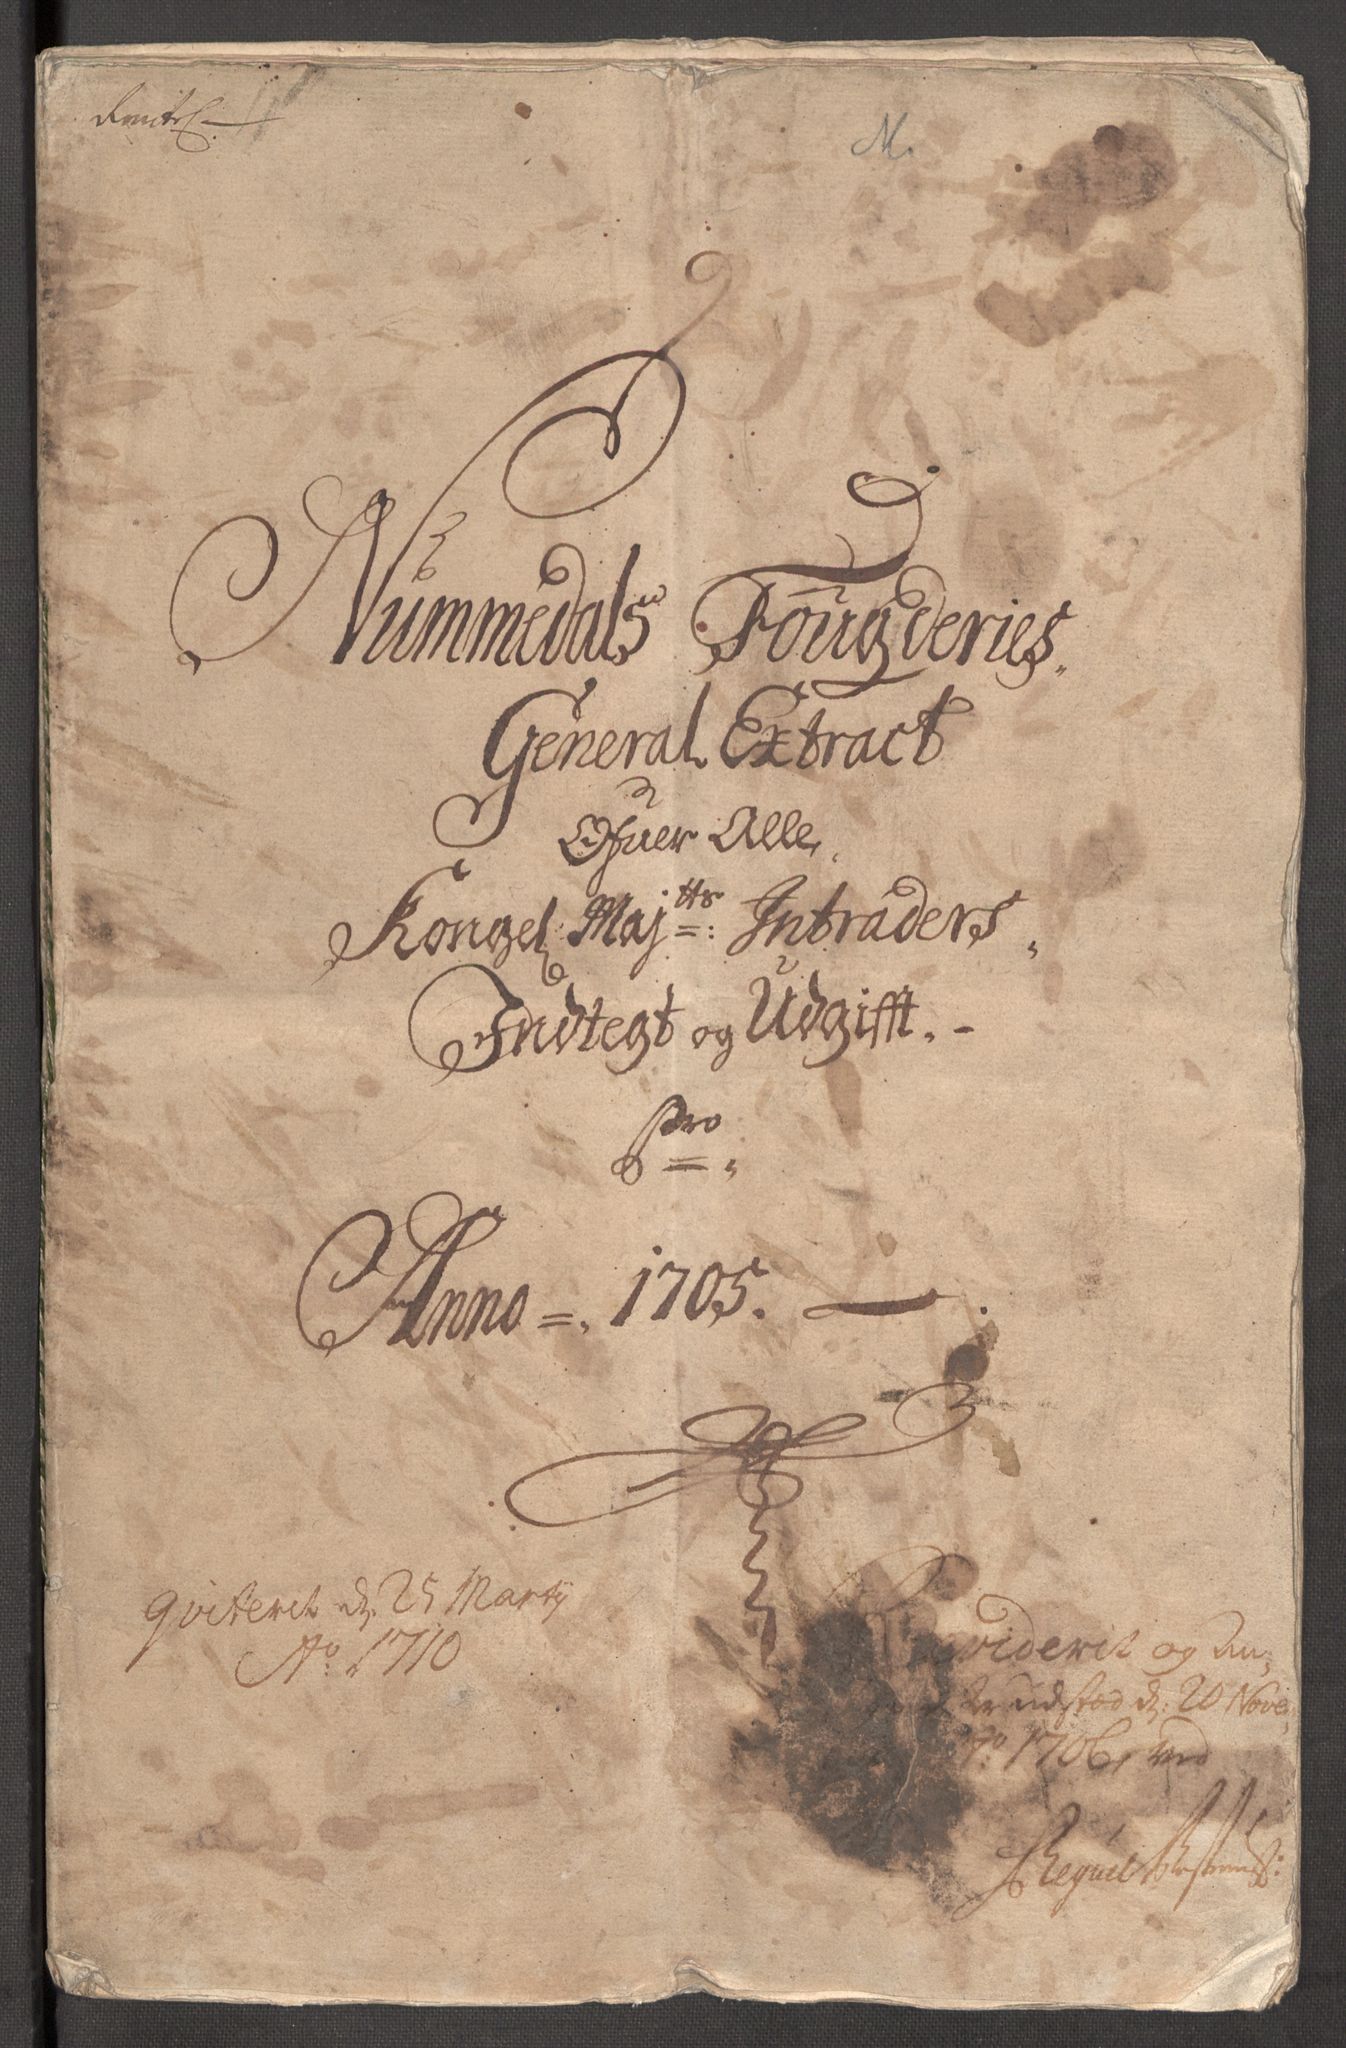 M.
Nummedals Fougderies
General Extract
Ofuer Alle
Kongel Majtts: Intraders
Indtegt og Udgifft. -
Pro
Anno =. 1705.
qviterit d. 25 Martij
Ao. 1710
Revideret og An-
udsted d: 20 Nove
Ao. 1706, ved